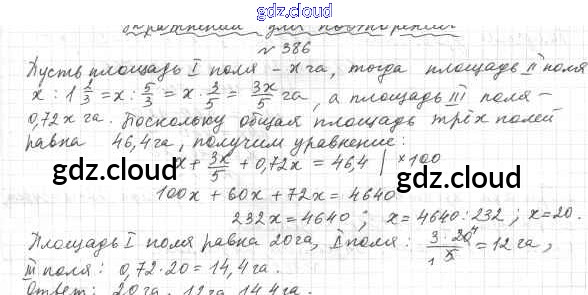 gdz.cloud
Упражнения для повторения
№ 386
Пусть площадь I поля – x га, тогда площадь II поля
x : 1 2/3 = x : 5/3 = x · 3/5 = 3x/5 га, а площадь III поля –
0,72x га. Поскольку общая площадь трёх полей
равна 46,4 га, получим уравнение:
x + 3x/5 + 0,72x = 46,4 | ×100
gdz.cloud gdz.cloud
100x + 60x + 72x = 4640
232x = 4640 ; x = 4640 : 232 ; x = 20.
Площадь I поля равна 20 га, II поля : 3 · 20 4 / 1 5 = 12 га,
III поля : 0,72 · 20 = 14,4 га.
Ответ: 20 га, 12 га, 14,4 га.
gdz.cloud